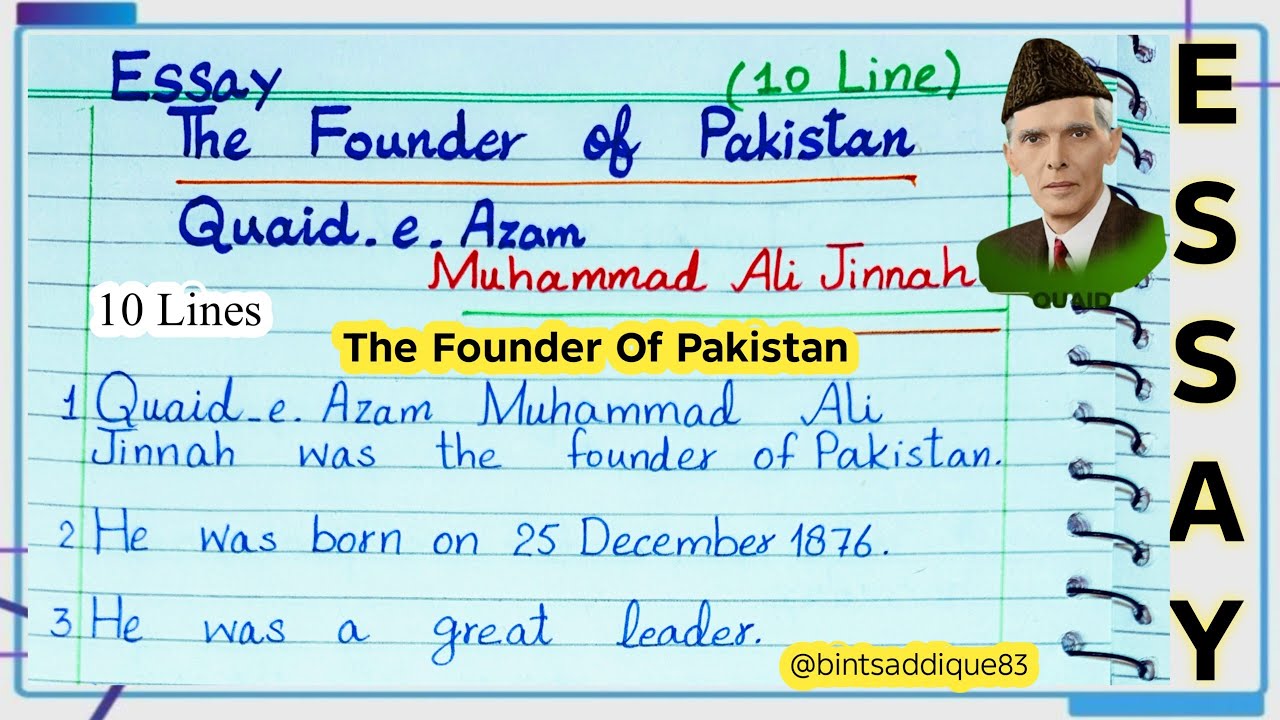 Essay
(10 Line)
The Founder of Pakistan
Quaid. e. Azam
Muhammad Ali Jinnah
QUAID
10 Lines
The Founder Of Pakistan
1 Quaid-e. Azam Muhammad Ali
Jinnah was the founder of Pakistan.
2 He was born on 25 December 1876.
3 He was a great leader.
@bintsaddique83
ESSAY